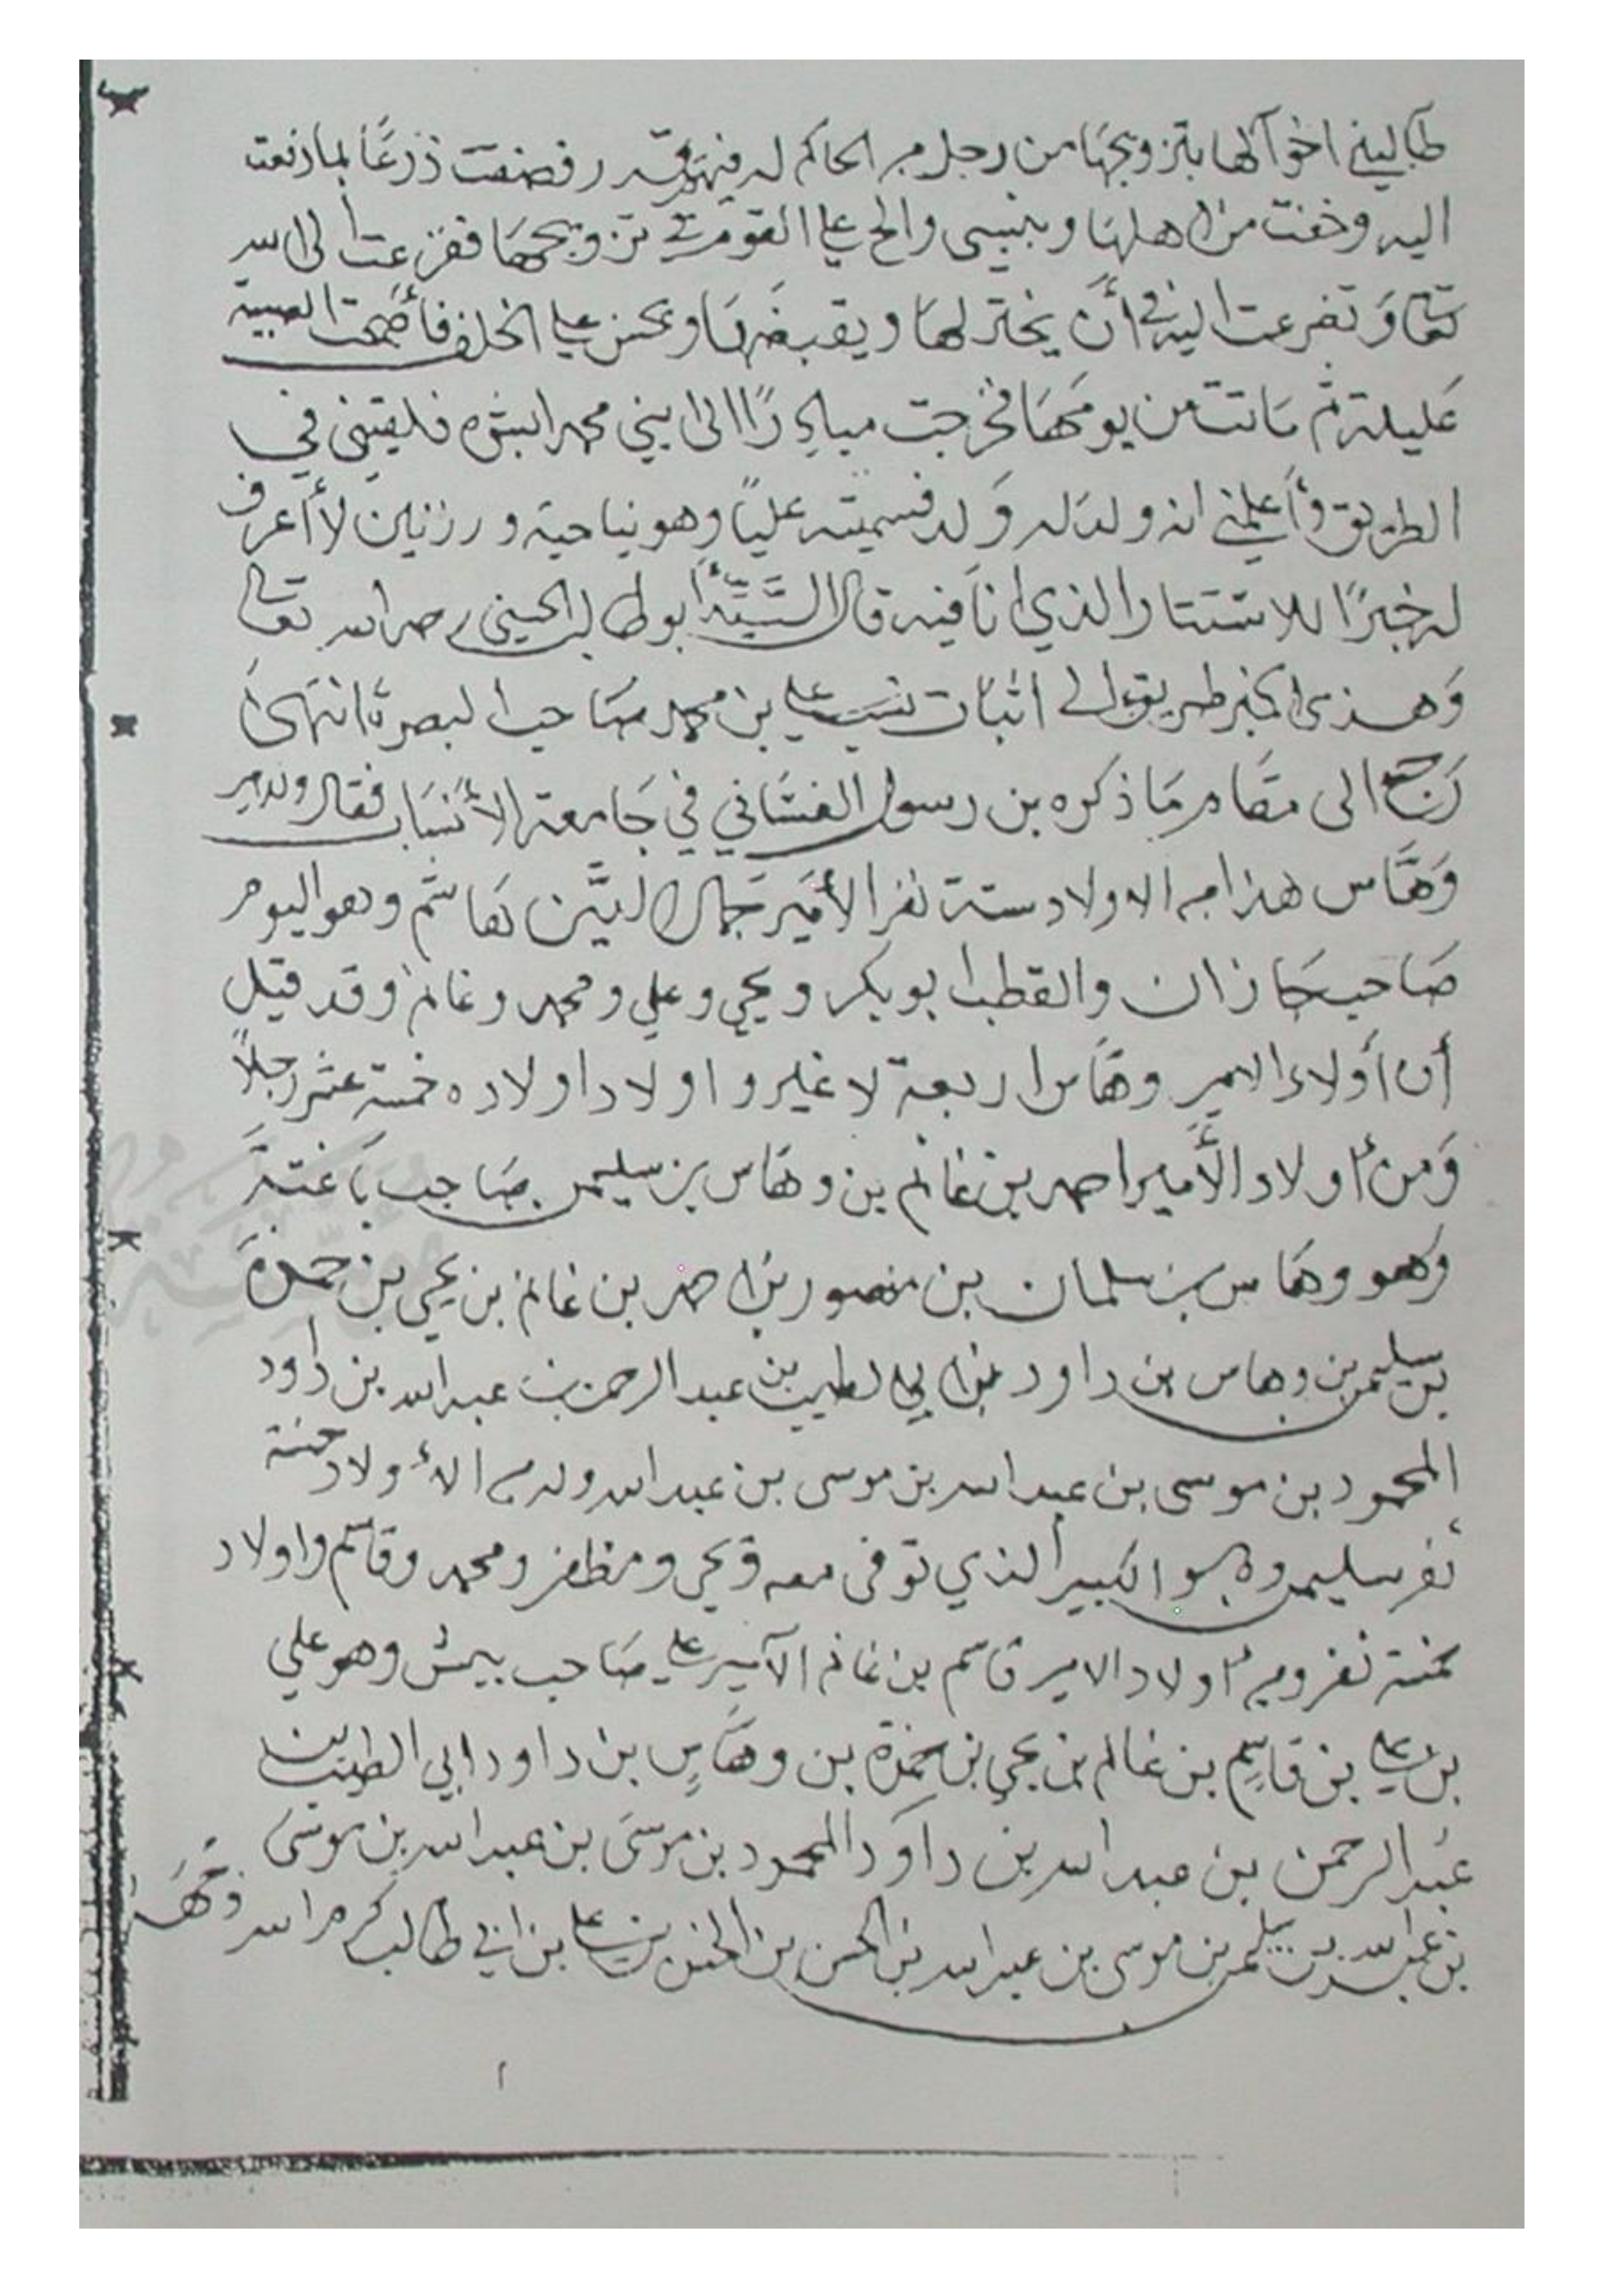 طالبني اخوالها بتزويجها من رجل من الحاكم له فيهم قدر فضقت ذرعًا بما دفعت
اليه وخفت من اهلها وبنيسى والح علي القوم في تزويجها ففزعت الى الله
تعالى وتضرعت اليه في أن يختر لها ويقبضها ويحسن علي الخلف فأصبحت الصبية
عليلة ثم ماتت من يومها فخرجت مبادرًا الى ابني محمد ابشره فلقيني في
الطريق وأعلمني انه ولد له ولد فسميته عليًا وهو بناحية ورزنين لا أعرف
له خبرًا للاستتار الذي انا فيه قال السيد أبو طالب الحسني رحمه الله تعالى
وهذى الخبر طريق الى اثبات نسب علي بن محمد صاحب البصرة انتهى
رجع الى مقام ما ذكره بن رسول الغساني في جامعة الأنساب فقال وللامير
وهاس هذا من الاولاد ستة نفر الأمير جمال الدين هاشم وهو اليوم
صاحب جازان والقطب ابو بكر ويحي وعلي ومحمد وغانم وقد قيل
أن أولاد الامير وهاس اربعة لا غير واولاد اولاده خمسة عشر رجلاً
ومن اولاد الأمير احمد بن غانم بن وهاس بن سليمن صاحب باغتة
وهو وهاس بن سلمان بن منصور بن احمد بن غانم بن يحي بن حمزة
بن سليمن بن وهاس بن داود بن ابي الطيب بن عبد الرحمن بن عبد الله بن داود
المحمود بن موسى بن عبد الله بن موسى بن عبد الله وله من الأولاد خمسة
نفر سليمن وهو الكبير الذي توفى معه ويحي ومظفر ومحمد وقاسم واولاد
خمسة نفر ومن اولاد الامير قاسم بن غانم الأمير علي صاحب بيش وهو علي
بن علي بن قاسم بن غانم بن يحي بن حمزة بن وهاس بن داود ابي الطيب بن
عبد الرحمن بن عبد الله بن داود المحمود بن موسى بن عبد الله بن موسى
بن عبد الله بن سليمن بن موسى بن عبد الله بن الحسن بن الحسن بن علي بن ابي طالب كرم الله وجهه